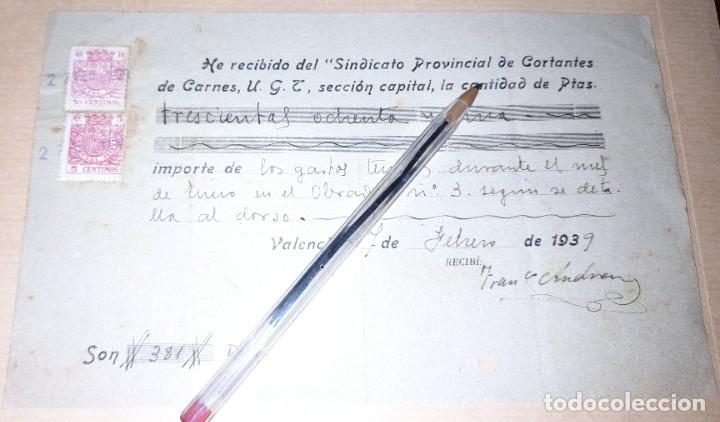 He recibido del "Sindicato Provincial de Cortantes
de Carnes, U. G. T, sección capital, la cantidad de Ptas.
trescientas ochenta y una
importe de los gastos durante el mes
de Enero en el nº 3. segun se deta-
lla al dorso.
Valenci 7 de Febrero de 1939
RECIBÍ:
Franco Andreu
Son 381
10 CENTIMOS
5 5
5 CENTIMOS
todocoleccion
todocoleccion.net